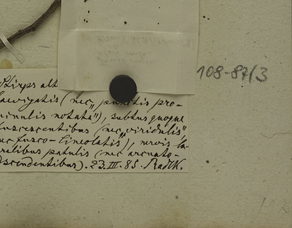 108-87/3
Stirps alt
laevigatis (nec „punctis pro-
minulis notata"), subtus quoque
fuscescentibus (nec „viridulis"
nec fusco-lineolatis), nervis la-
teralibus patulis (nec arcuato-
adscendentibus). 23.III.85. Radlk.